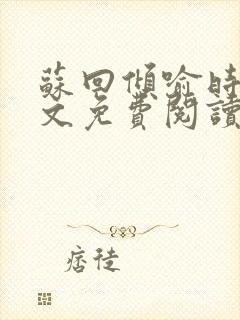 蘇回傾喻時
文免費閱讀
痞徒